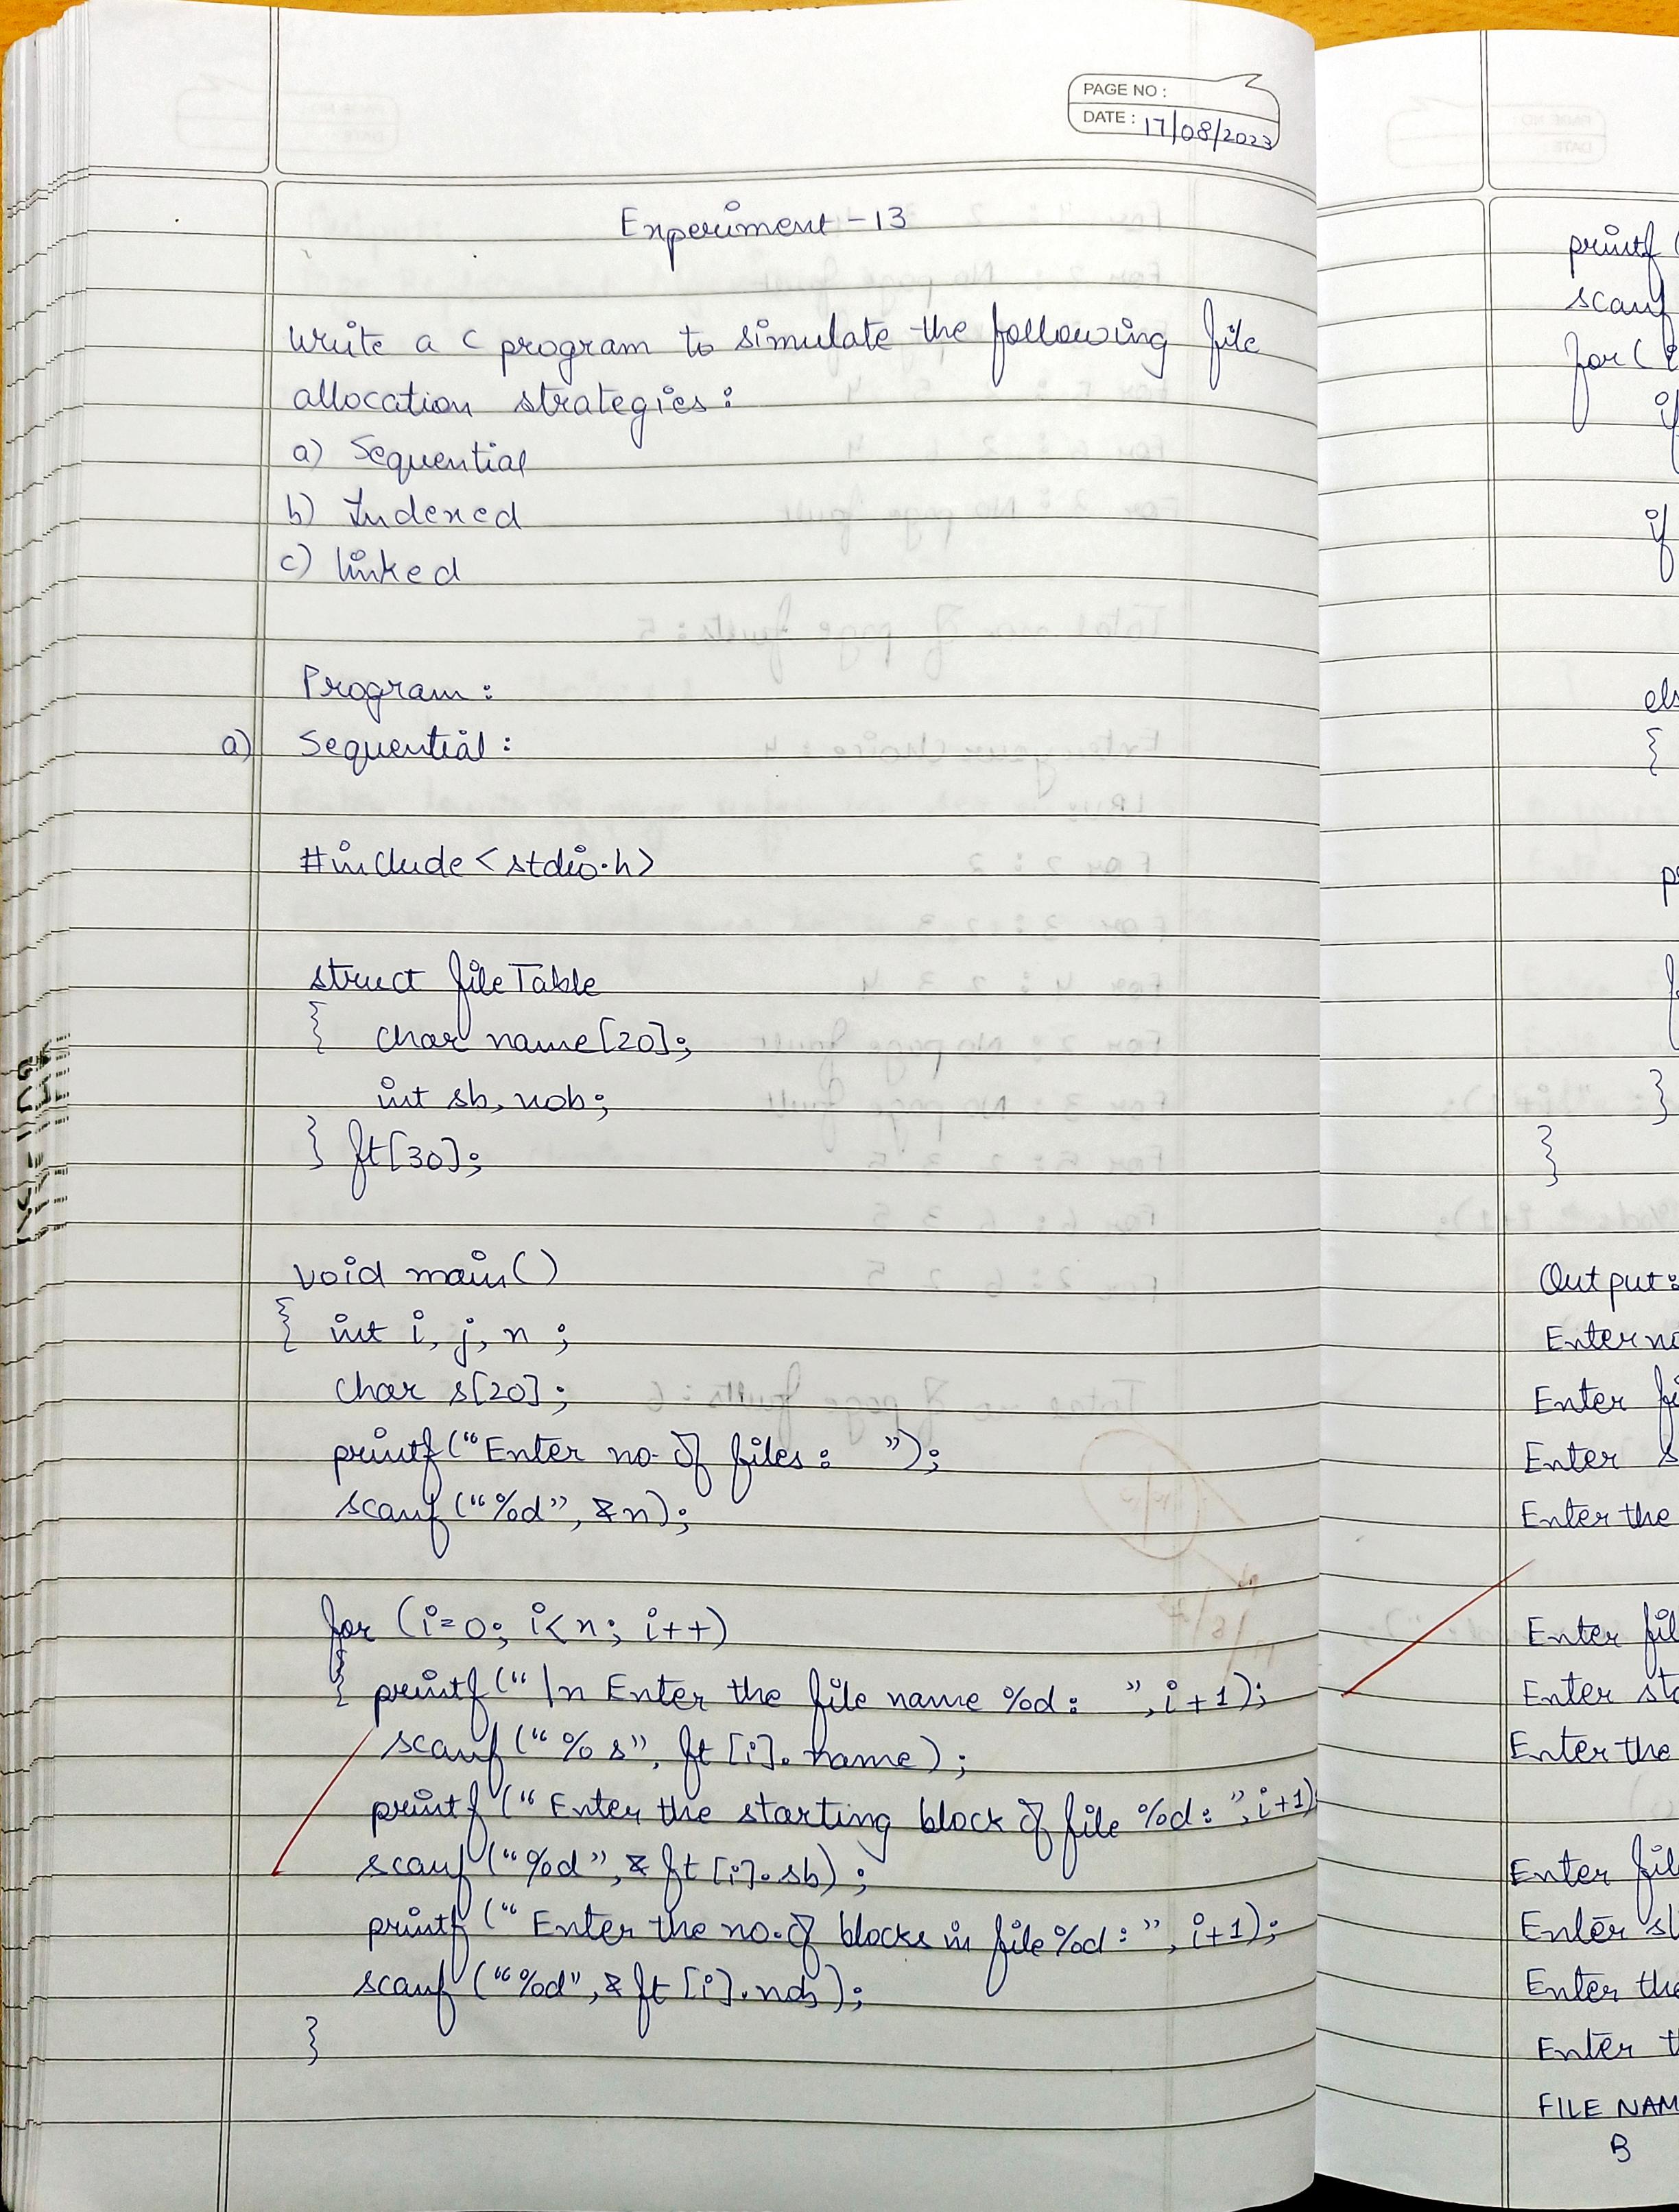 PAGE NO :
DATE : 17/08/2023
Experiment - 13
Write a C program to simulate the following file
allocation strategies :
a) Sequential
b) Indexed
c) linked
Program :
a) Sequential :
#include <stdio.h>
struct fileTable
{ char name[20];
int sb, nob;
} ft[30];
void main()
{ int i, j, n ;
char s[20];
printf("Enter no. of files : ");
scanf("%d", &n);
for (i=0; i<n; i++)
{ printf("\n Enter the file name %d : ", i+1);
scanf("%s", ft[i].name);
printf("Enter the starting block of file %d : ", i+1)
scanf("%d", &ft[i].sb);
printf("Enter the no. of blocks in file %d : ", i+1);
scanf("%d", &ft[i].nob);
}
printf (
scanf
for (
if
if
{
}
}
Output :
Enter
Enter
Enter
Enter the
Enter
Enter
Enter the
Enter
Enter
Enter
Enter
FILE
B